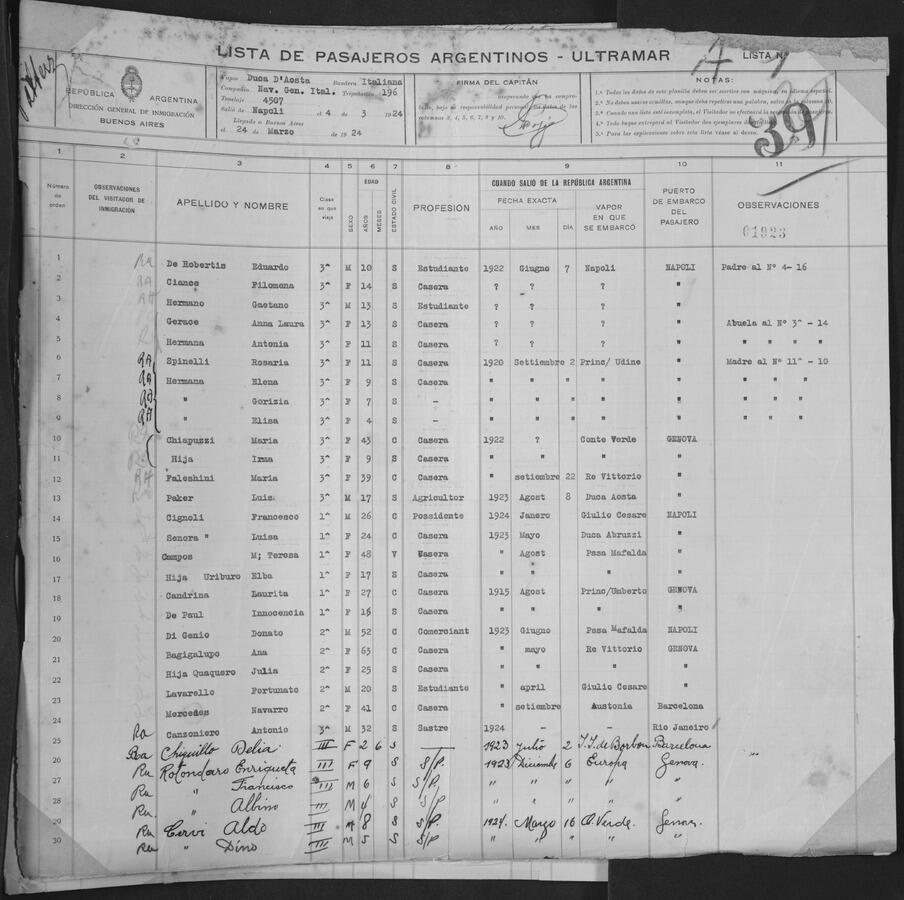 LISTA DE PASAJEROS ARGENTINOS - ULTRAMAR
LISTA N°
REPÚBLICA ARGENTINA
DIRECCIÓN GENERAL DE INMIGRACIÓN
BUENOS AIRES
Vapor Duca D'Aosta Bandera Italiana
Compañia Nav. Gen. Ital. Tripulación 196
Tonelaje 4507
Salió de Napoli el 4 de 3 1924
Llegado a Buenos Aires
el 24 de Marzo de 1924
FIRMA DEL CAPITÁN
NOTAS:
39
1 2 3 4 5 6 7 8 9 10 11
Número de orden
OBSERVACIONES DEL VISITADOR DE INMIGRACIÓN
APELLIDO Y NOMBRE
Clase en que viaja
SEXO
EDAD
AÑOS
MESES
ESTADO CIVIL
PROFESIÓN
CUANDO SALIÓ DE LA REPÚBLICA ARGENTINA
FECHA EXACTA
AÑO MES DÍA
VAPOR EN QUE SE EMBARCÓ
PUERTO DE EMBARCO DEL PASAJERO
OBSERVACIONES
01923
1 Ra De Robertis Eduardo 3ª M 10 S Estudiante 1922 Giugno 7 Napoli NAPOLI Padre al Nº 4- 16
2 RA Ciance Filomena 3ª F 14 S Casera ? ? ? "
3 Hermano Gaetano 3ª M 13 S Estudiante ? ? ? "
4 Gerace Anna Laura 3ª F 13 S Casera ? ? ? " Abuela al Nº 3ª - 14
5 Hermana Antonia 3ª F 11 S Casera ? ? ? " " " " "
6 RA Spinelli Rosaria 3ª F 11 S Casera 1920 Settiembre 2 Princ/ Udine " Madre al Nº 11ª - 10
7 RA Hermana Elena 3ª F 9 S Casera " " " " " " " " " "
8 RA " Gorizia 3ª F 7 S - " " " " " " " " " "
9 RA " Elisa 3ª F 4 S - " " " " " " " " " "
10 Chiapuzzi Maria 3ª F 43 C Casera 1922 ? Conte Verde GENOVA
11 Hija Irma 3ª F 9 S Casera " " " "
12 RA Faleshini Maria 3ª F 39 C Casera " setiembre 22 Re Vittorio "
13 Paker Luis 3ª M 17 S Agricultor 1923 Agost 8 Duca Aosta "
14 Cignoli Francesco 1ª M 26 C Possidente 1924 Janero Giulio Cesare NAPOLI
15 Senora " Luisa 1ª F 24 C Casera 1923 Mayo Duca Abruzzi "
16 Campos M; Teresa 1ª F 48 V Casera " Agost Pssa Mafalda "
17 Hija Uriburo Elba 1ª F 17 S Casera " " " "
18 Candrina Laurita 1ª F 27 C Casera 1915 Agost Princ/Umberto GENOVA
19 De Paul Innocencia 1ª F 16 S Casera " " " "
20 Di Genio Donato 2ª M 52 C Comerciant 1923 Giugno Pssa Mafalda NAPOLI
21 Bagigalupo Ana 2ª F 63 C Casera " mayo Re Vittorio GENOVA
22 Hija Quaquero Julia 2ª F 25 S Casera " " " "
23 Lavarello Fortunato 2ª M 20 S Estudiante " april Giulio Cesare "
24 Mercedes Navarro 2ª F 41 C Casera " setiembre Austonia Barcelona
25 Ra Canzoniero Antonio 3ª M 32 S Sastre 1924 - - Rio Janeiro
26 Chiquillo Delia III F 2 6 S — 1923 Julio 2 Barcelona
27 Ra Rotondaro Enriqueta III F 9 S S/P. 1923 Diciembre 6 Europa Genova.
28 Ra " Francisco III M 6 S S/P, " " " "
Ra. " Albino III M 4 S S/P " " " "
29 Ra Cervi Aldo III 8 S S/P. 1924. Março 16 C. Verde. Genova.
30 Ra " Dino III M 5 S S/P " " " "